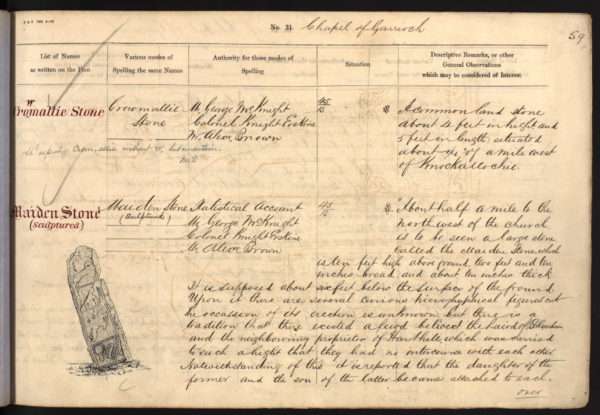 No. 31 Chapel of Garioch
59
List of Names
as written on the Plan
Various modes of
Spelling the same Names
Authority for those modes of
Spelling
Situation
Descriptive Remarks, or other
General Observations
which may be considered of Interest
Crowmallie Stone
Crowmallie
Stone
Mr George McKnight
Colonel Knight Erskine
Mr Alexr Brown
45
A common land stone
about 4 feet in height and
5 feet in length, situated
about of a mile west
of Knockallochie
Maiden Stone
(sculptured)
Maiden Stone
(Sculptured)
Statistical Account
Mr George McKnight
Colonel Knight Erskine
Mr Alexr Brown
45
"About half a mile to the
north west of the church
is to be seen a large stone
called the Maiden Stone, which
is ten feet high above ground, two feet and ten
inches broad and about ten inches thick
It is supposed about six feet below the surface of the ground.
Upon it there are several curious hieroglyphical figures cut
the occassion of its erection is unknown but there is a
tradition that there existed a feud between the Laird of
and the neighbouring proprietor of Harthill, which was carried
to such a hight that they had no intercourse with each other
Notwithstanding of this it is reported that the daughter of the
former and the son of the latter became attached to each
over